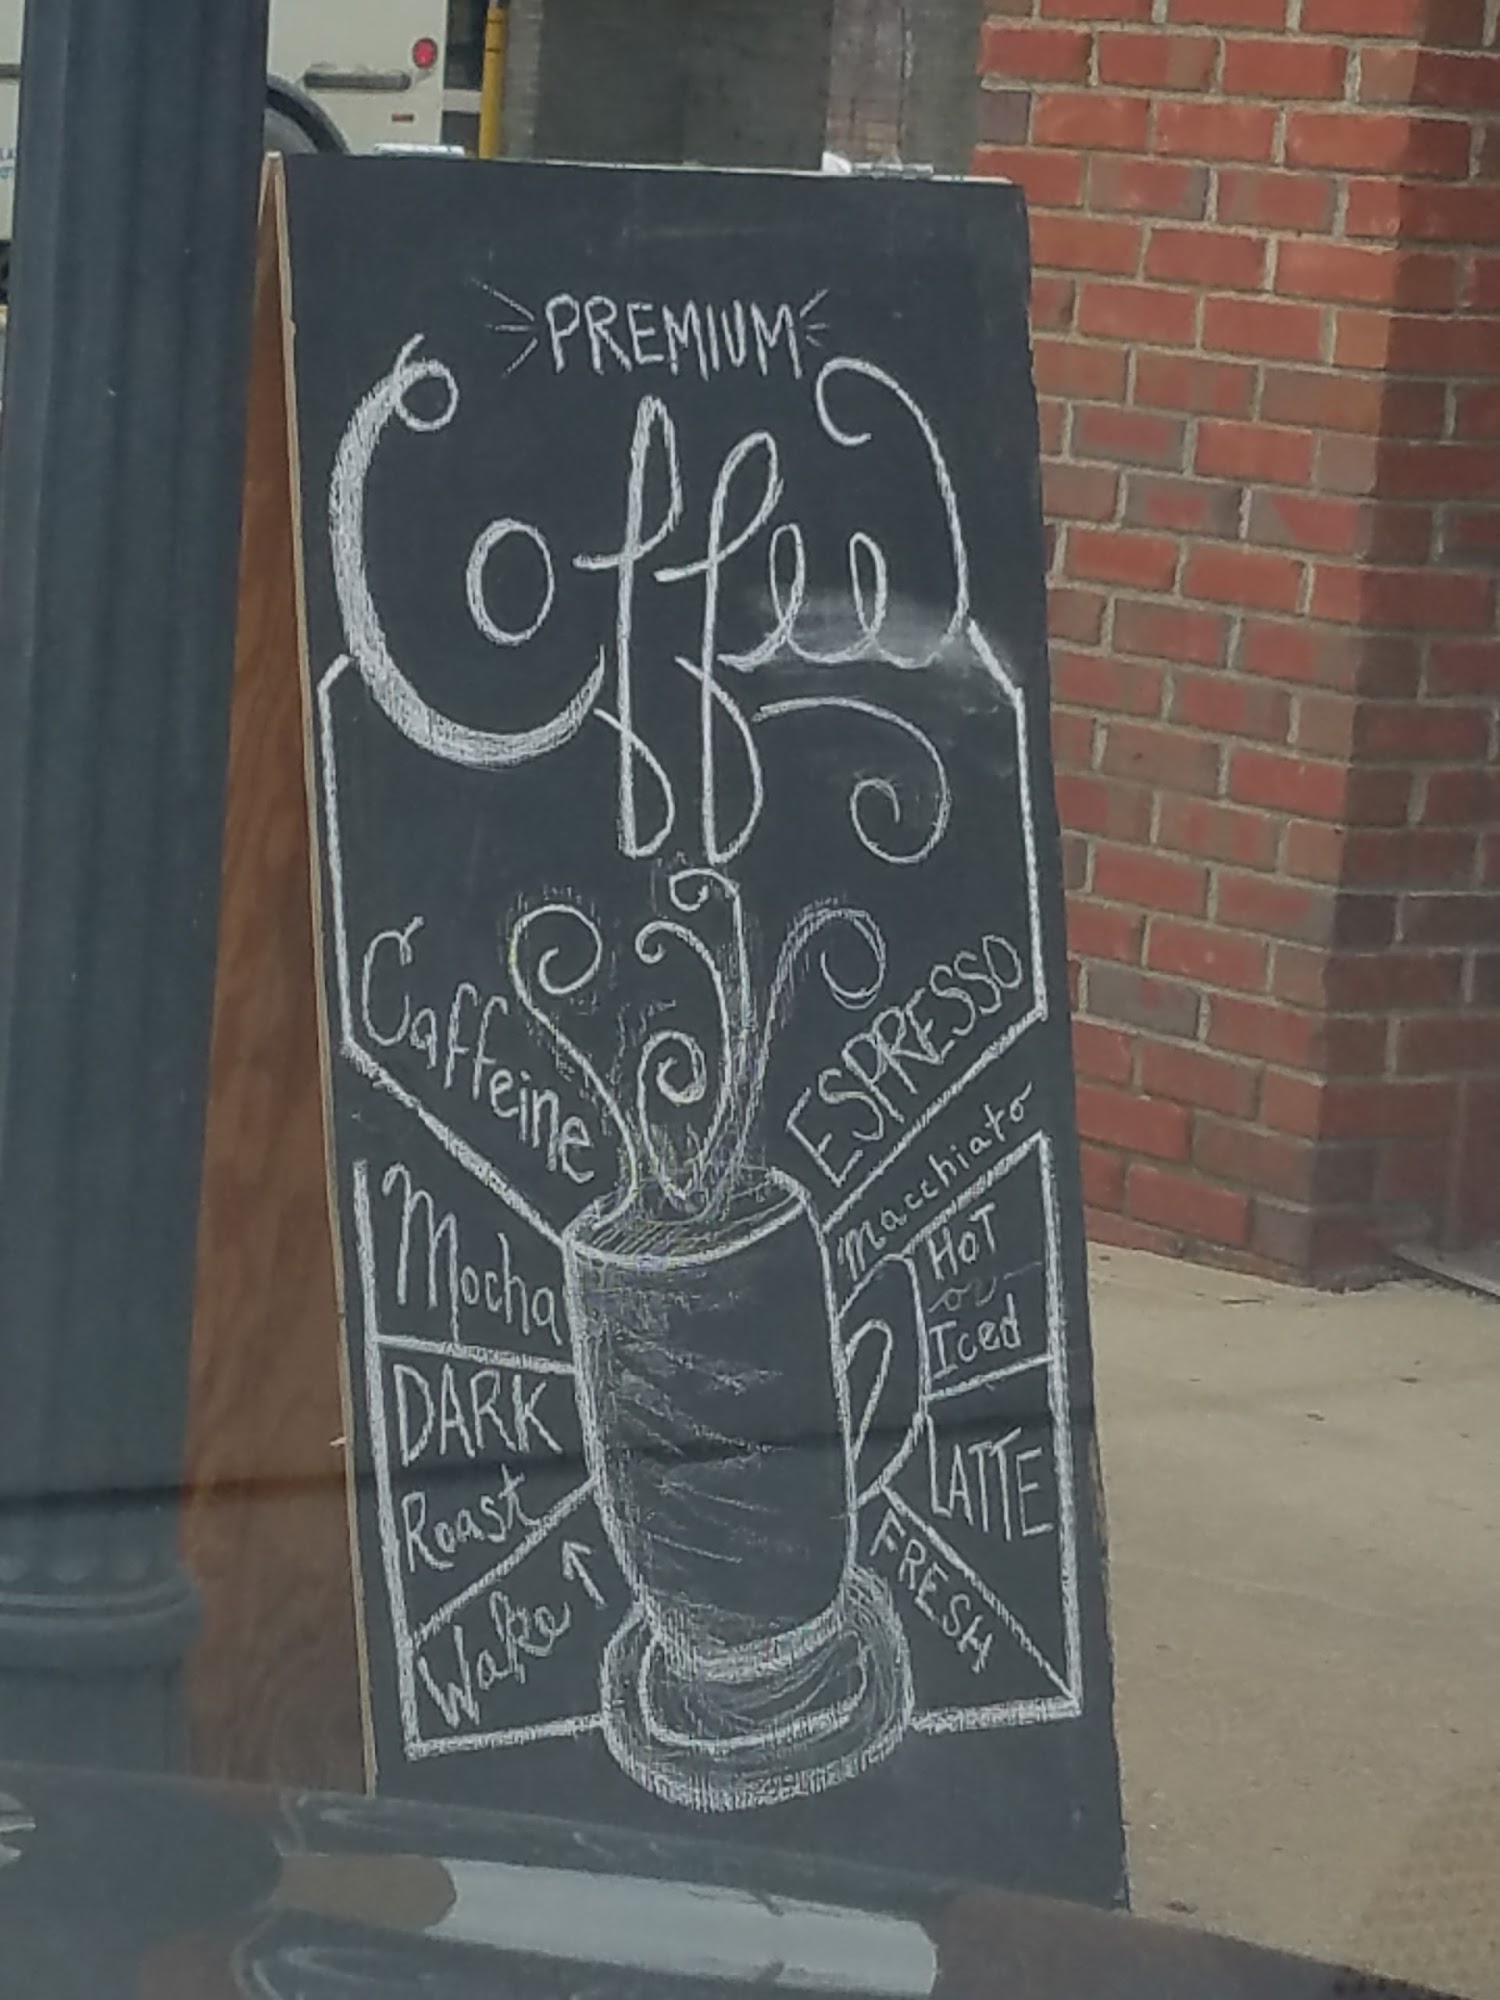 PREMIUM
Coffee
Caffeine
ESPRESSO
Macchiato
Mocha
HOT
or
Iced
DARK
Roast
LATTE
Wake ↑
FRESH